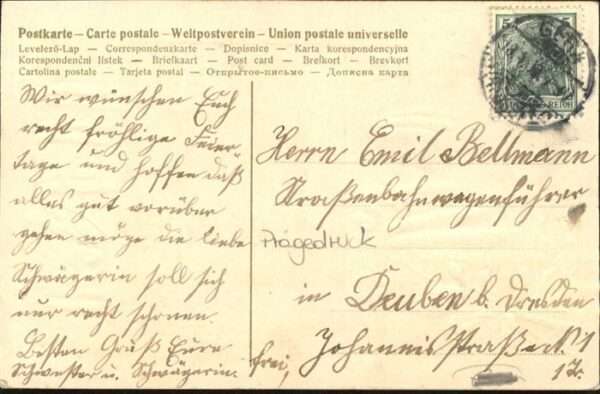 Postkarte – Carte postale – Weltpostverein – Union postale universelle
Levelező-Lap – Correspondenzkarte – Dopisnice – Karta korespondencyjna
Korespondenční lístek – Briefkaart – Post card – Brefkort – Brevkort
Cartolina postale – Tarjeta postal – Открытое-письмо – Дописна карта
5 5
REICH
Wir wünschen Euch
recht fröhlige Feier
tage und hoffen daß
alles gut vorüber
gehen möge die liebe
Schwägerin soll sich
nur recht schonen.
Besten Gruß Eure
Schwester u. Schwägerin.
Herrn Emil Bellmann
Straßenbahnwagenführer
Prägedruck
in Deuben b. Dresden
frei, Johannisstraße 1
1